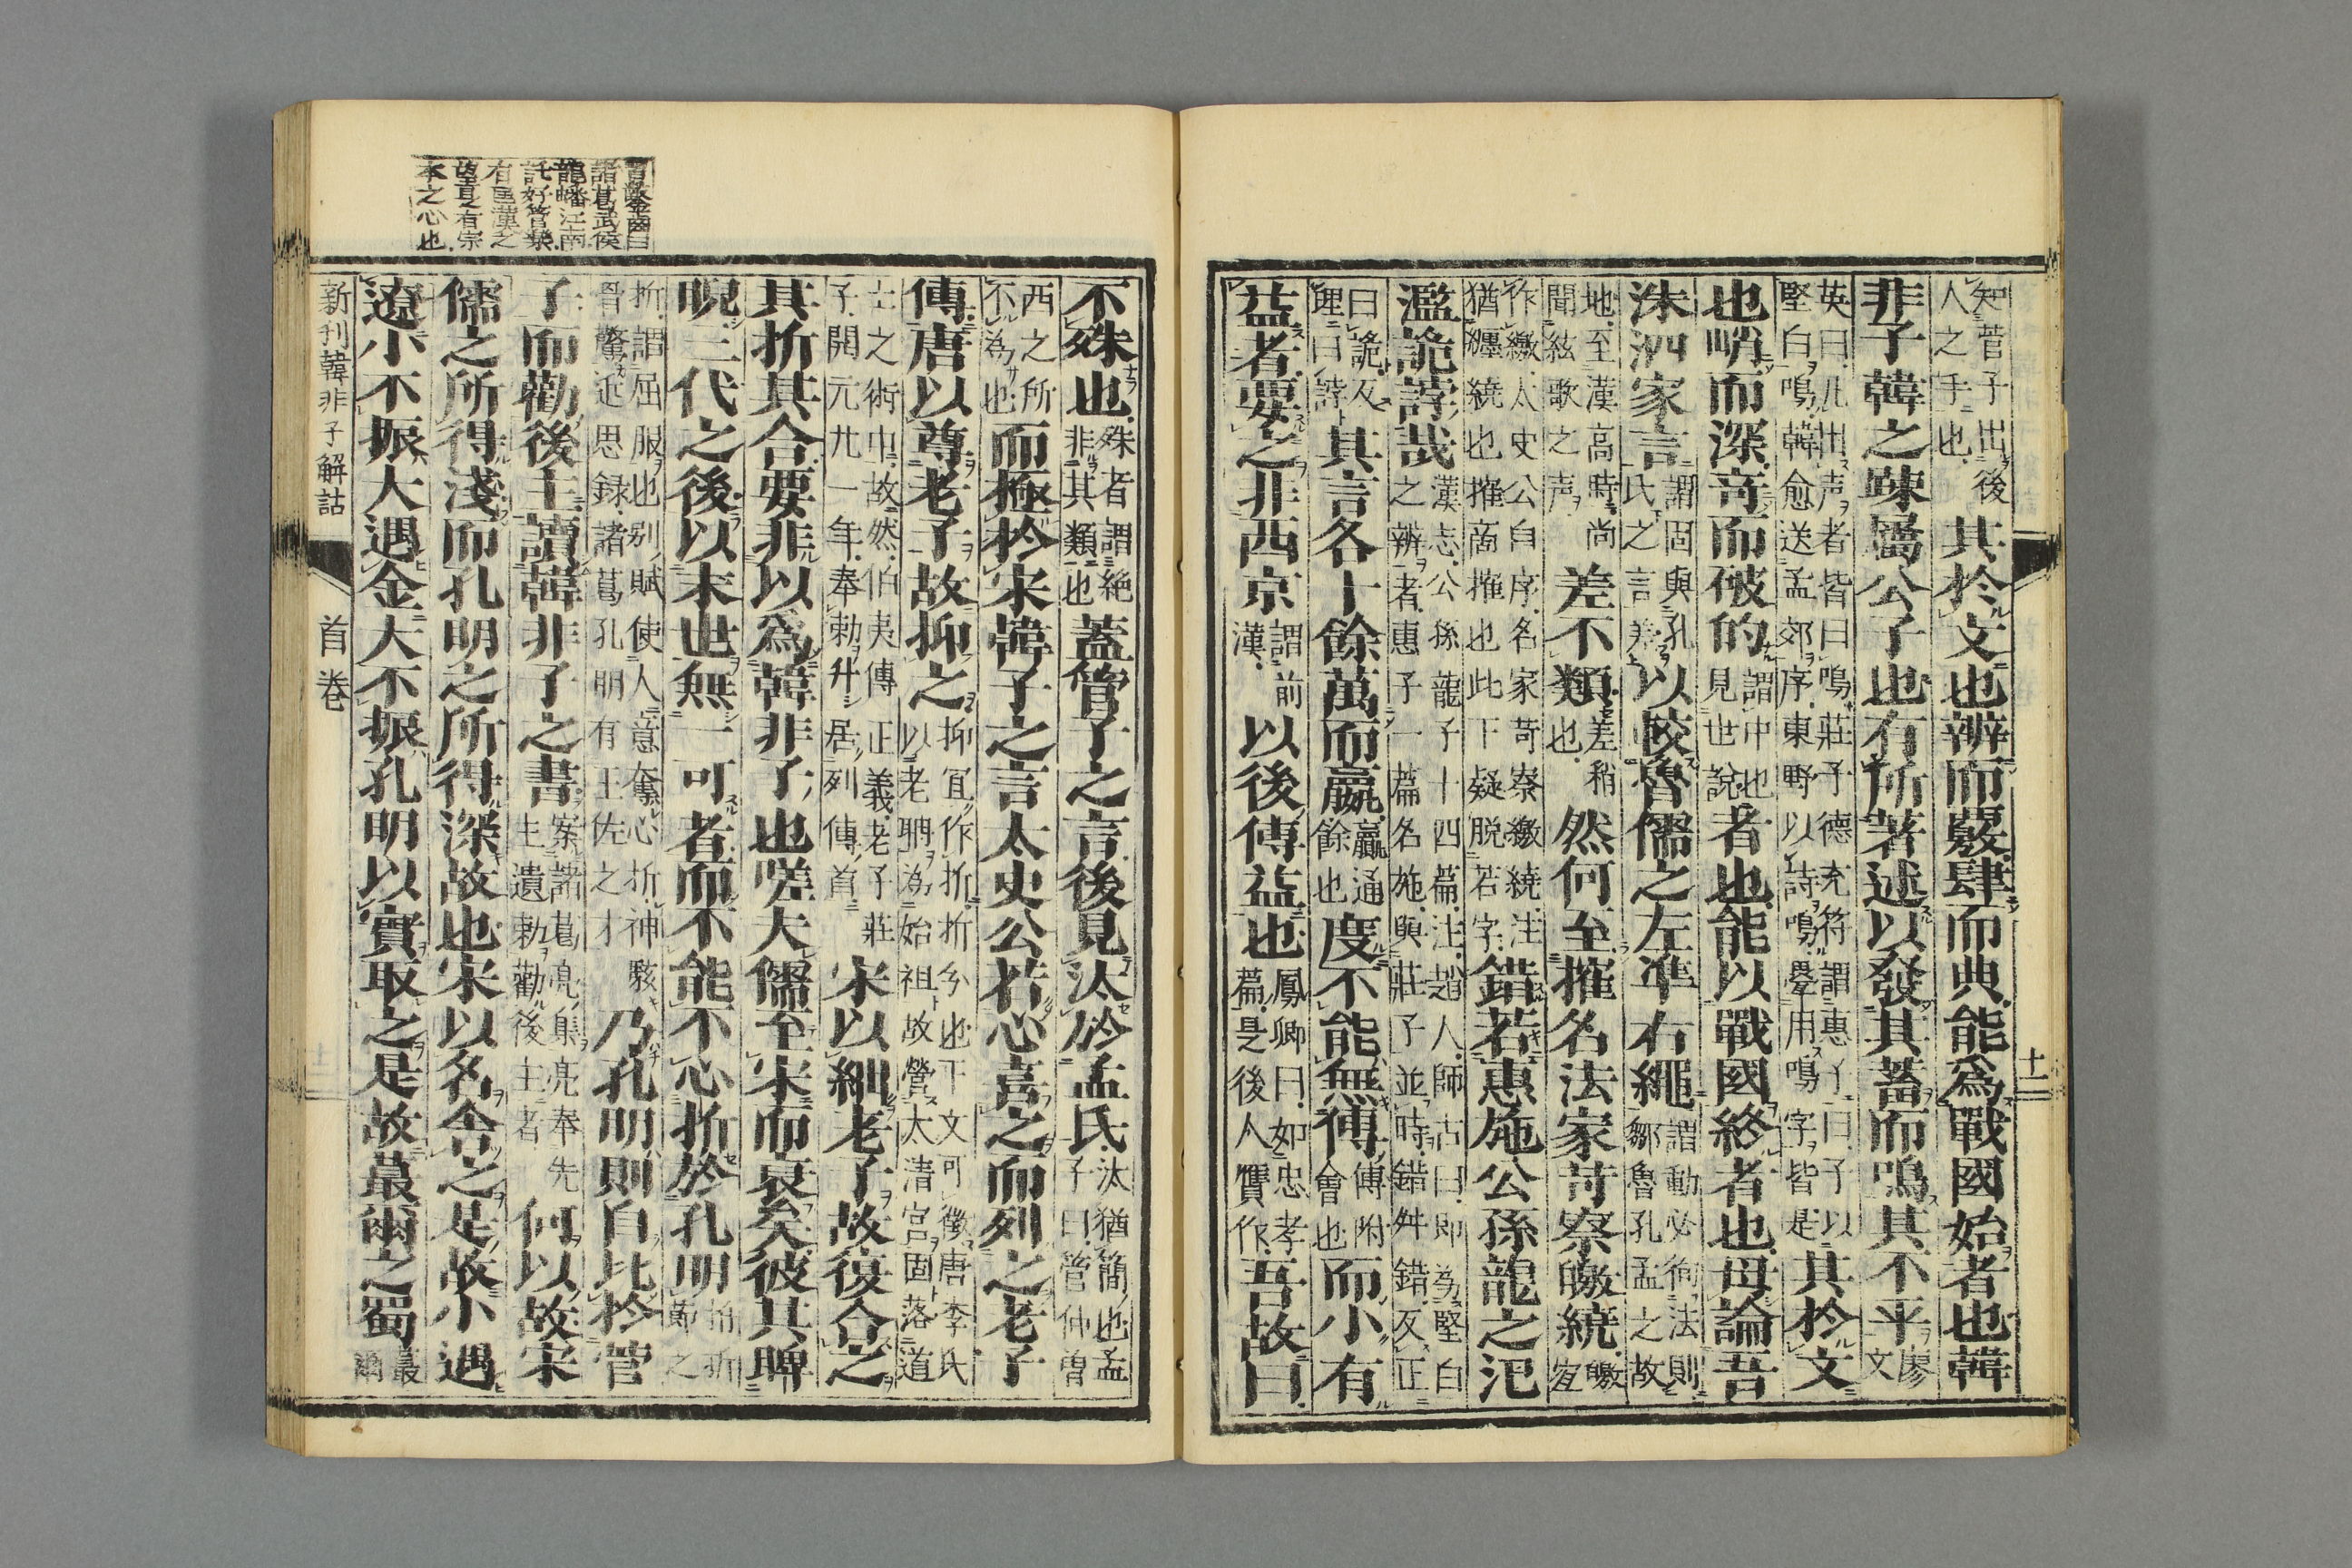 知菅子出後
人之手也
其於文也辨而嚴肆而典能爲戰國始者也韓
非子韓之疎屬公子也有所著述以發其蓄而鳴其不平
廖文
英曰凡出声者皆曰鳴莊子德充符謂惠子曰子以
堅白鳴韓愈送孟郊序東野以詩鳴塁用鳴字皆是
其於文
也峭而深竒而破的
謂中也
見世說
者也能以戰國終者也毋論吾
洙泗家言
謂固與孔
氏之言異
以較魯儒之左準右繩
謂動必徇法則
鄒魯孔孟之故
地至漢高時尚
聞絃歌之声
差不類
差稍
也
然何至摧名法家苛察皦繞
皦
宜
作繳太史公自序名家苛察繳繞注
猶纒繞也摧啇摧也此下疑脱若字
錯若惠施公孫龍之汜
濫詭誖哉
漢志公孫龍子十四篇注趙人師古曰即為堅白
之辨者惠子一篇名施與莊子並時錯舛錯反正
曰詭反
理曰誖
其言各十餘萬而贏
贏通
餘也
度不能無傅
傅附
會也
而小有
益者要之非西京
謂前
漢
以後傅益也
鳳卿曰如忠孝
篇是後人贋作
吾故曰
十二
不殊也
殊者謂絶
非其類也
蓋管子之言後見汰於孟氏
汰猶簡也孟
子曰管仲曽
西之所
不為也
而極於宋韓子之言太史公若心喜之而列之老子
傳唐以尊老子故抑之
抑宜作折折分也下文可徵唐李氏
以老聃為始祖故營太清宮固落道
士之術中故然伯夷傳正義老子莊
子開元廿一年奉勅升居列傳首
宋以絀老子故復合之
其折其合要非以爲韓非子也嗟夫儒至宋而衰矣彼其睥
睨三代之後以末世無一可者而不能不心折於孔明
折折
節之
折謂屈服也别賦使人意奪心折神駭
骨驚近思録諸葛孔明有王佐之才
乃孔明則自比於菅
子而勸後主讀韓非子之書
案諸葛亮集亮奉先
主遺勅勸後主者
何以故宋
儒之所得淺而孔明之所得深故也宋以名舎之是故小遇
遼小不振大遇金大不振孔明以實取之是故蕞爾之蜀
蕞
爾
新刊韓非子解詁
首卷
習鑿齒曰
諸葛武侯
龍蟠江南
託好管樂
有匡漢之
望真有宗
本之心也